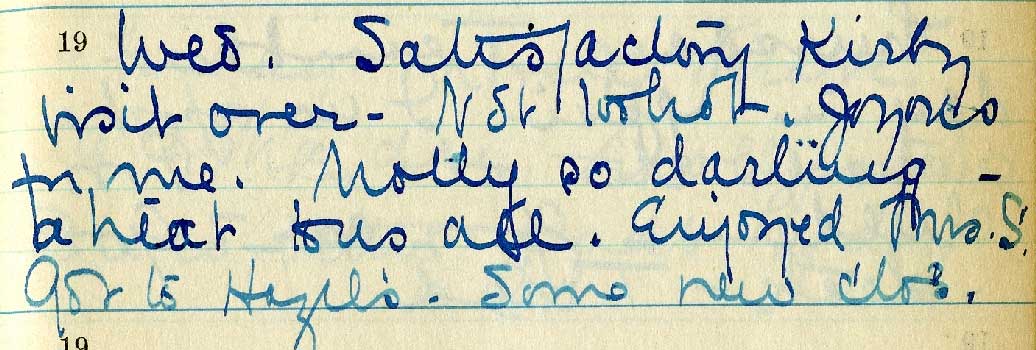 19 Wed. Satisfactory Kirby
visit over - Not too hot. Joyous
to me. Molly so darling -
a treat to us all. Enjoyed Mrs. S.
Got to Hazel's. Some new clo's.
19